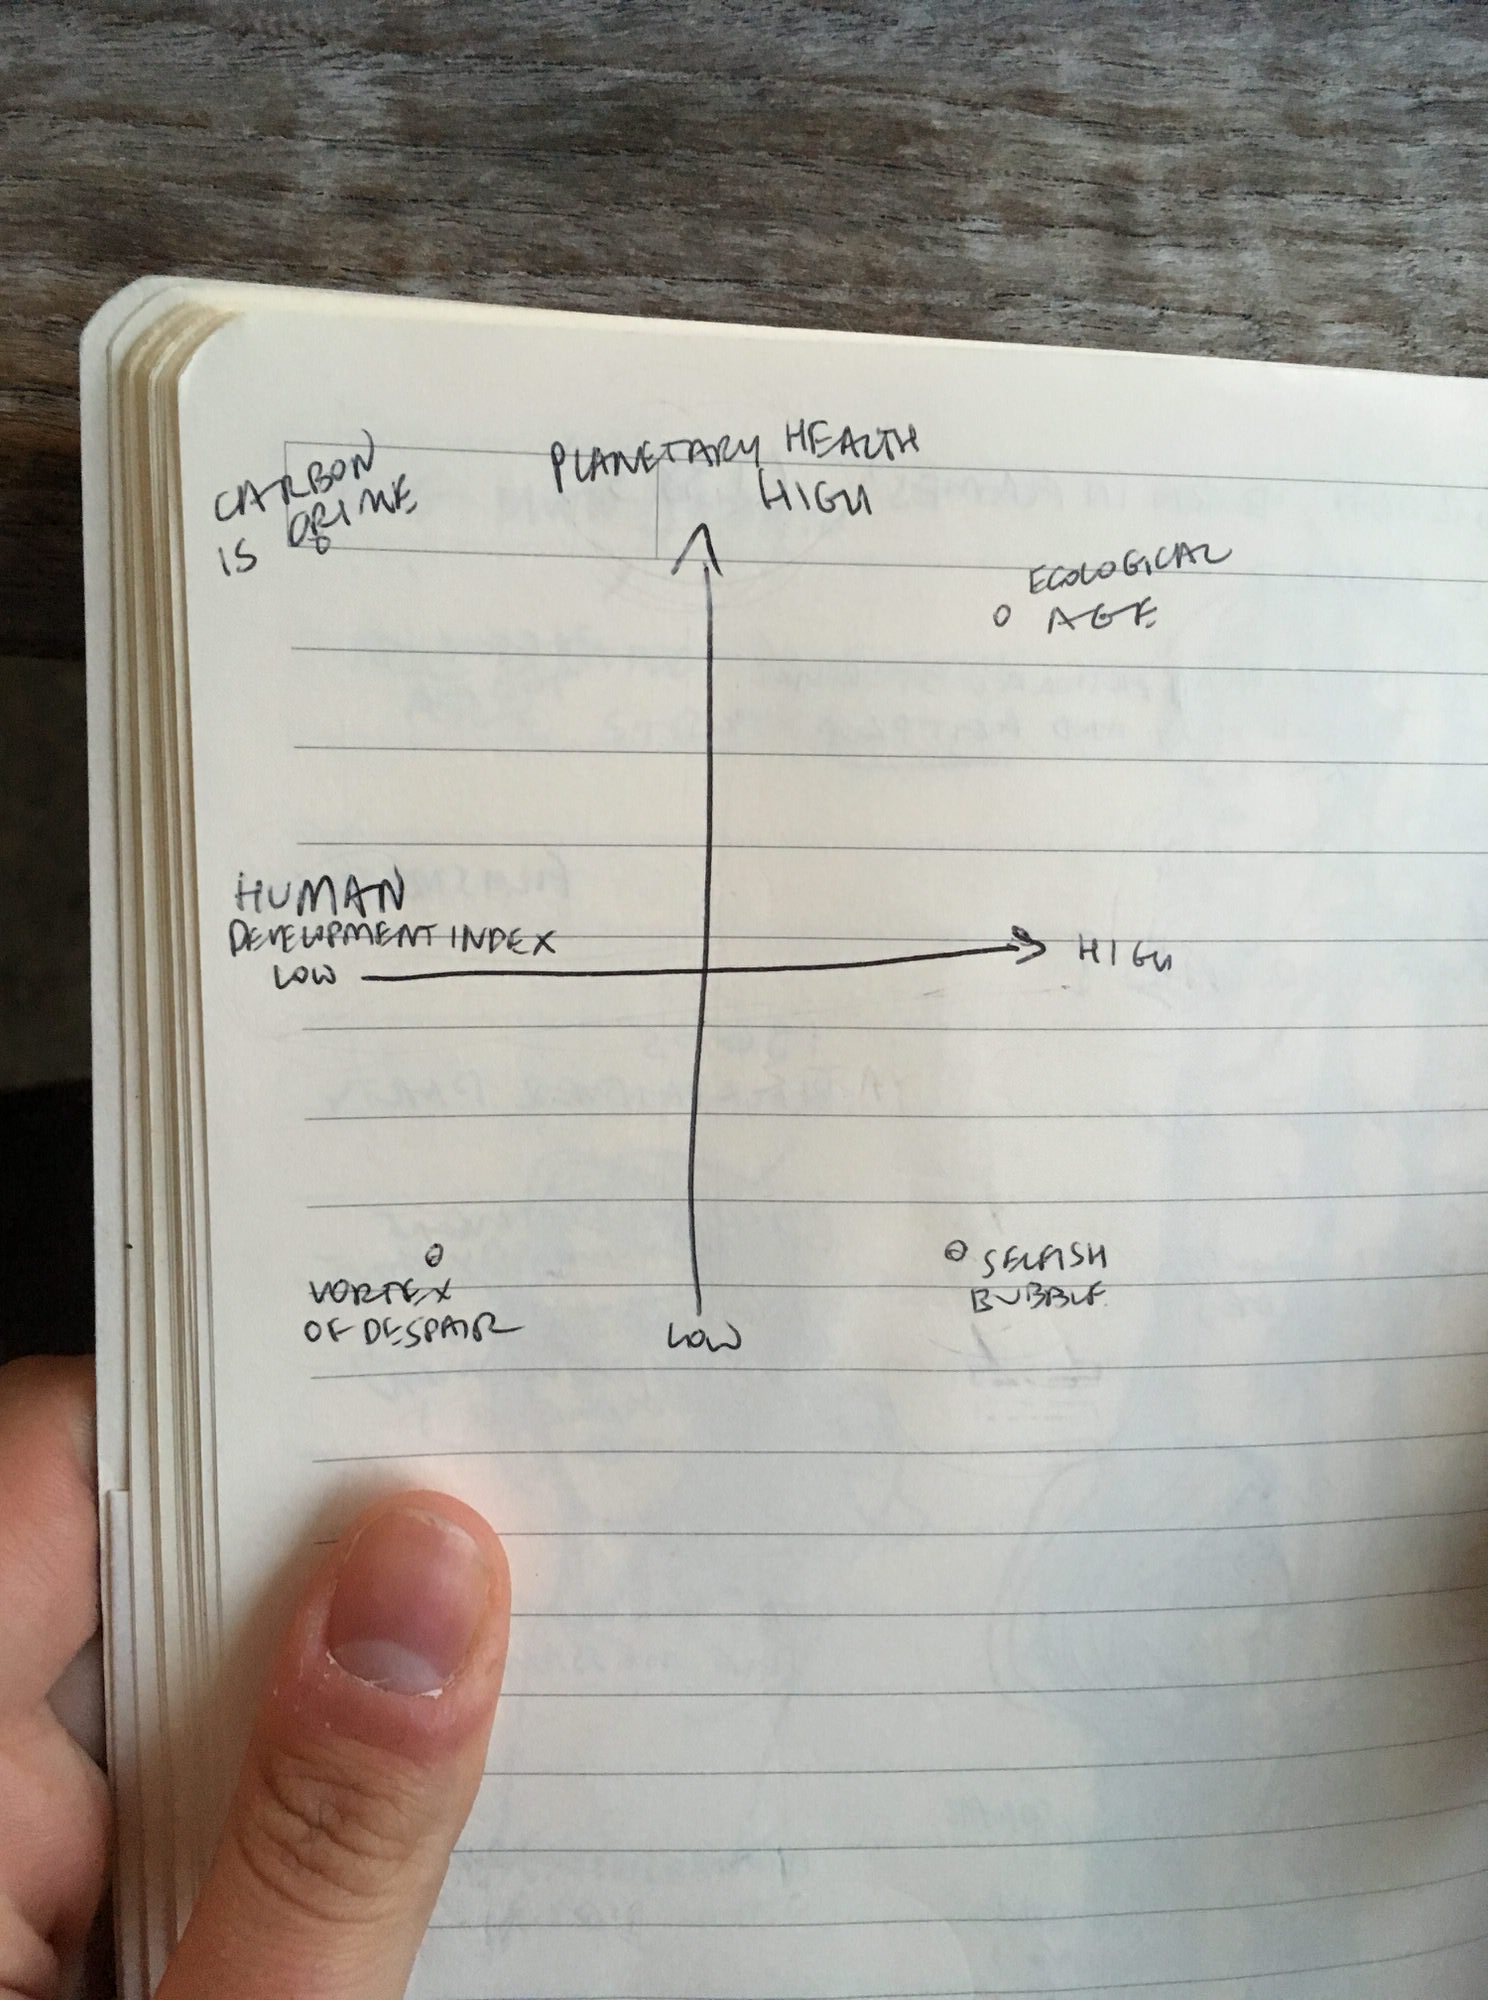 CARBON
IS CRIME
PLANETARY HEALTH
HIGH
ECOLOGICAL
AGE
HUMAN
DEVELOPMENT INDEX
LOW
HIGH
VORTEX
OF DESPAIR
SELFISH
BUBBLE
LOW